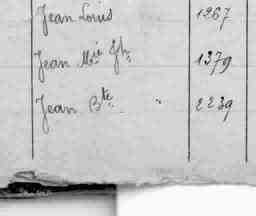 Jean Louis 1267
Jean Mie Jh. 1379
Jean Bte " 2239